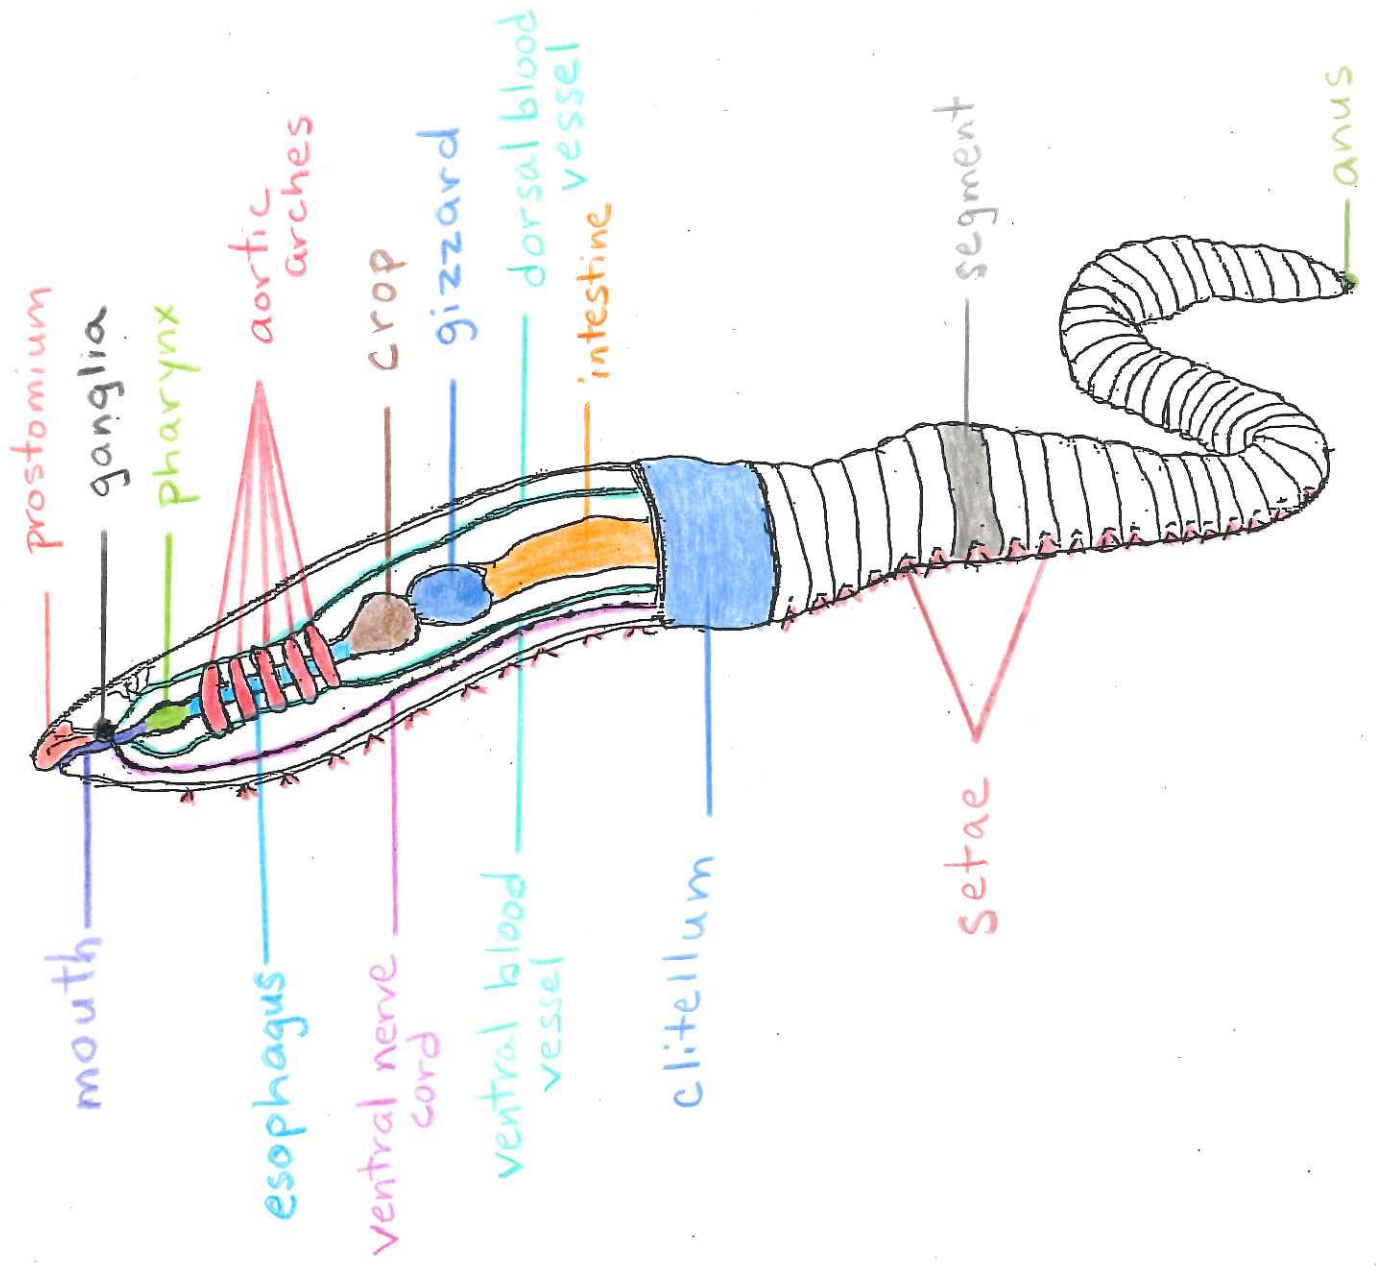 prostomium
ganglia
pharynx
aortic
arches
crop
gizzard
dorsal blood
vessel
intestine
segment
anus
mouth
esophagus
ventral nerve
cord
ventral blood
vessel
clitellum
setae